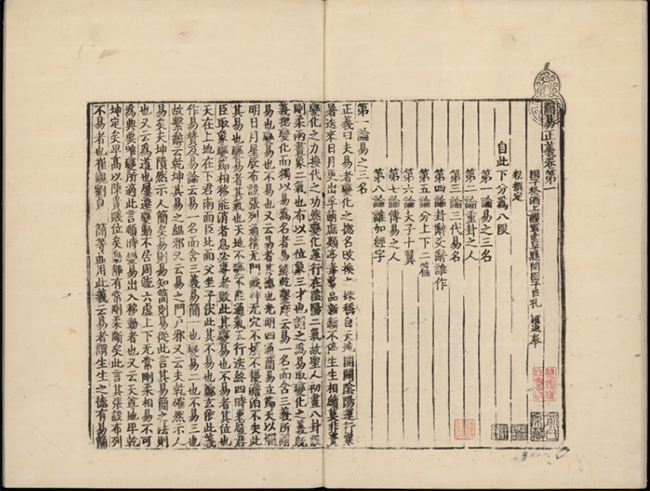 周易正義卷第一
國子祭酒上護軍曲阜縣開國子臣孔 穎達奉
勑撰定
自此下分為八段
第一論易之三名
第二論重卦之人
第三論三代易名
第四論卦辭爻辭誰作
第五論分上下二篇
第六論夫子十翼
第七論傳易之人
第八論誰加經字
第一論易之三名
正義曰夫易者變化之揔名改換之殊稱自天地開闢陰陽運行寒
暑迭來日月更出孚萌庶類亭毒羣品新新不停生生相續莫非資
變化之力換代之功然變化運行在陰陽二氣故聖人初畫八卦設
剛柔兩畫象二氣也布以三位象三才也謂之為易取變化之義既
義揔變化而獨以易為名者易緯乾鑿度云易一名而含三義所謂
易也變易也不易也又云易者其德也光明四通簡易立節天以爛
明日月星辰布設張列通精無門藏神無穴不煩不擾澹泊不失此
其易也變易者其氣也天地不變不能通氣五行迭終四時更廢君
臣取象變節相移能消者息必專者敗此其變易也不易者其位也
天在上地在下君南面臣北面父坐子伏此其不易也鄭玄依此義
作易贊及易論云易一名而含三義易簡一也變易二也不易三也
故繫辭云乾坤其易之緼邪又云易之門戶邪又云夫乾確然示人
易矣夫坤隤然示人簡矣易則易知簡則易從此言其易簡之法則
也又云為道也屢遷變動不居周流六虛上下无常剛柔相易不可
為典要唯變所適此言順時變易出入移動者也又云天尊地卑乾
坤定矣卑高以陳貴賤位矣動靜有常剛柔斷矣此言其張設布列
不易者也崔覲劉貞簡等並用此義云易者謂生生之德有易簡